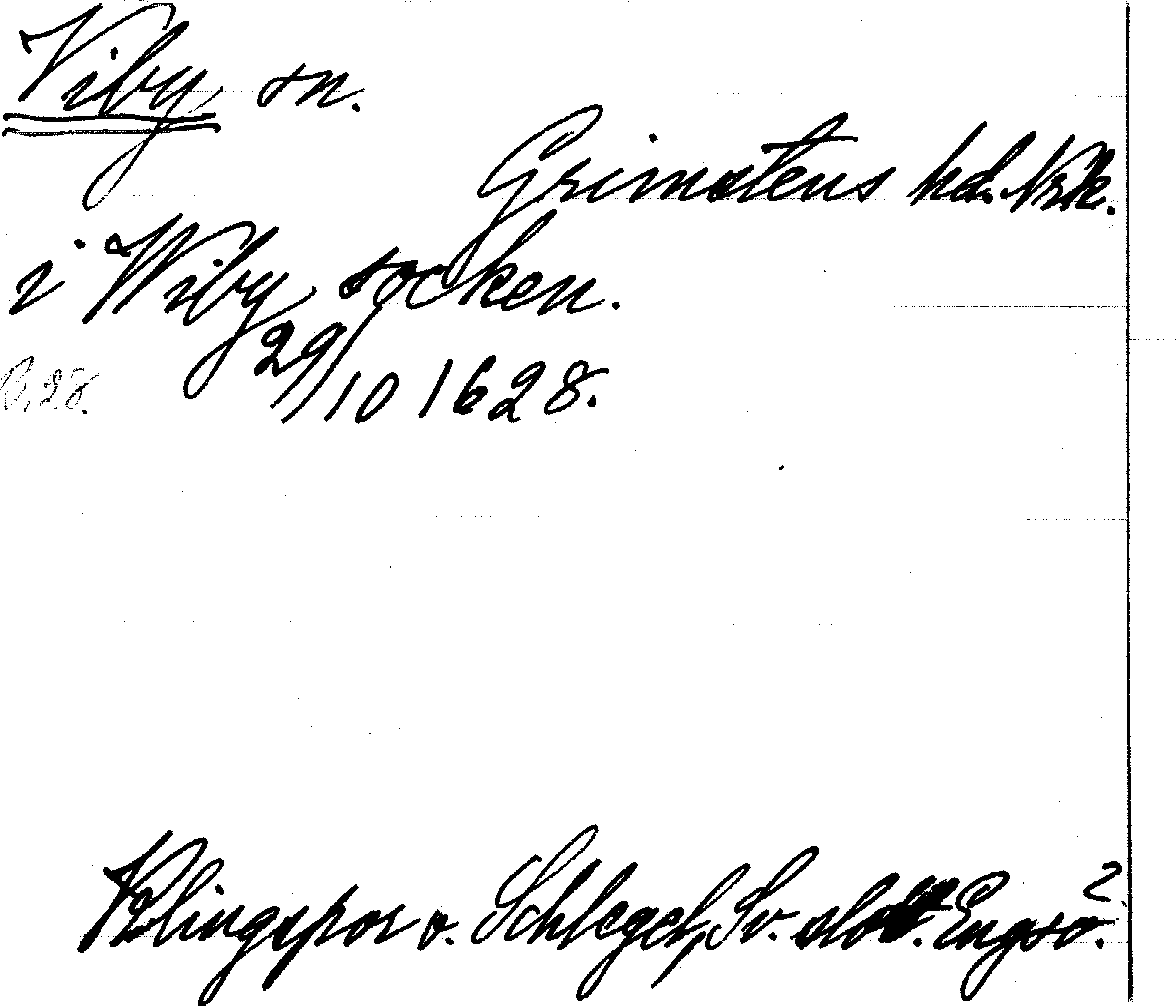 Viby sn.
Grimstens hd. Nrk.
i Wiby socken.
29/10 1628.
Klingspor o. Schlegel, Sv. slott. Engsö.